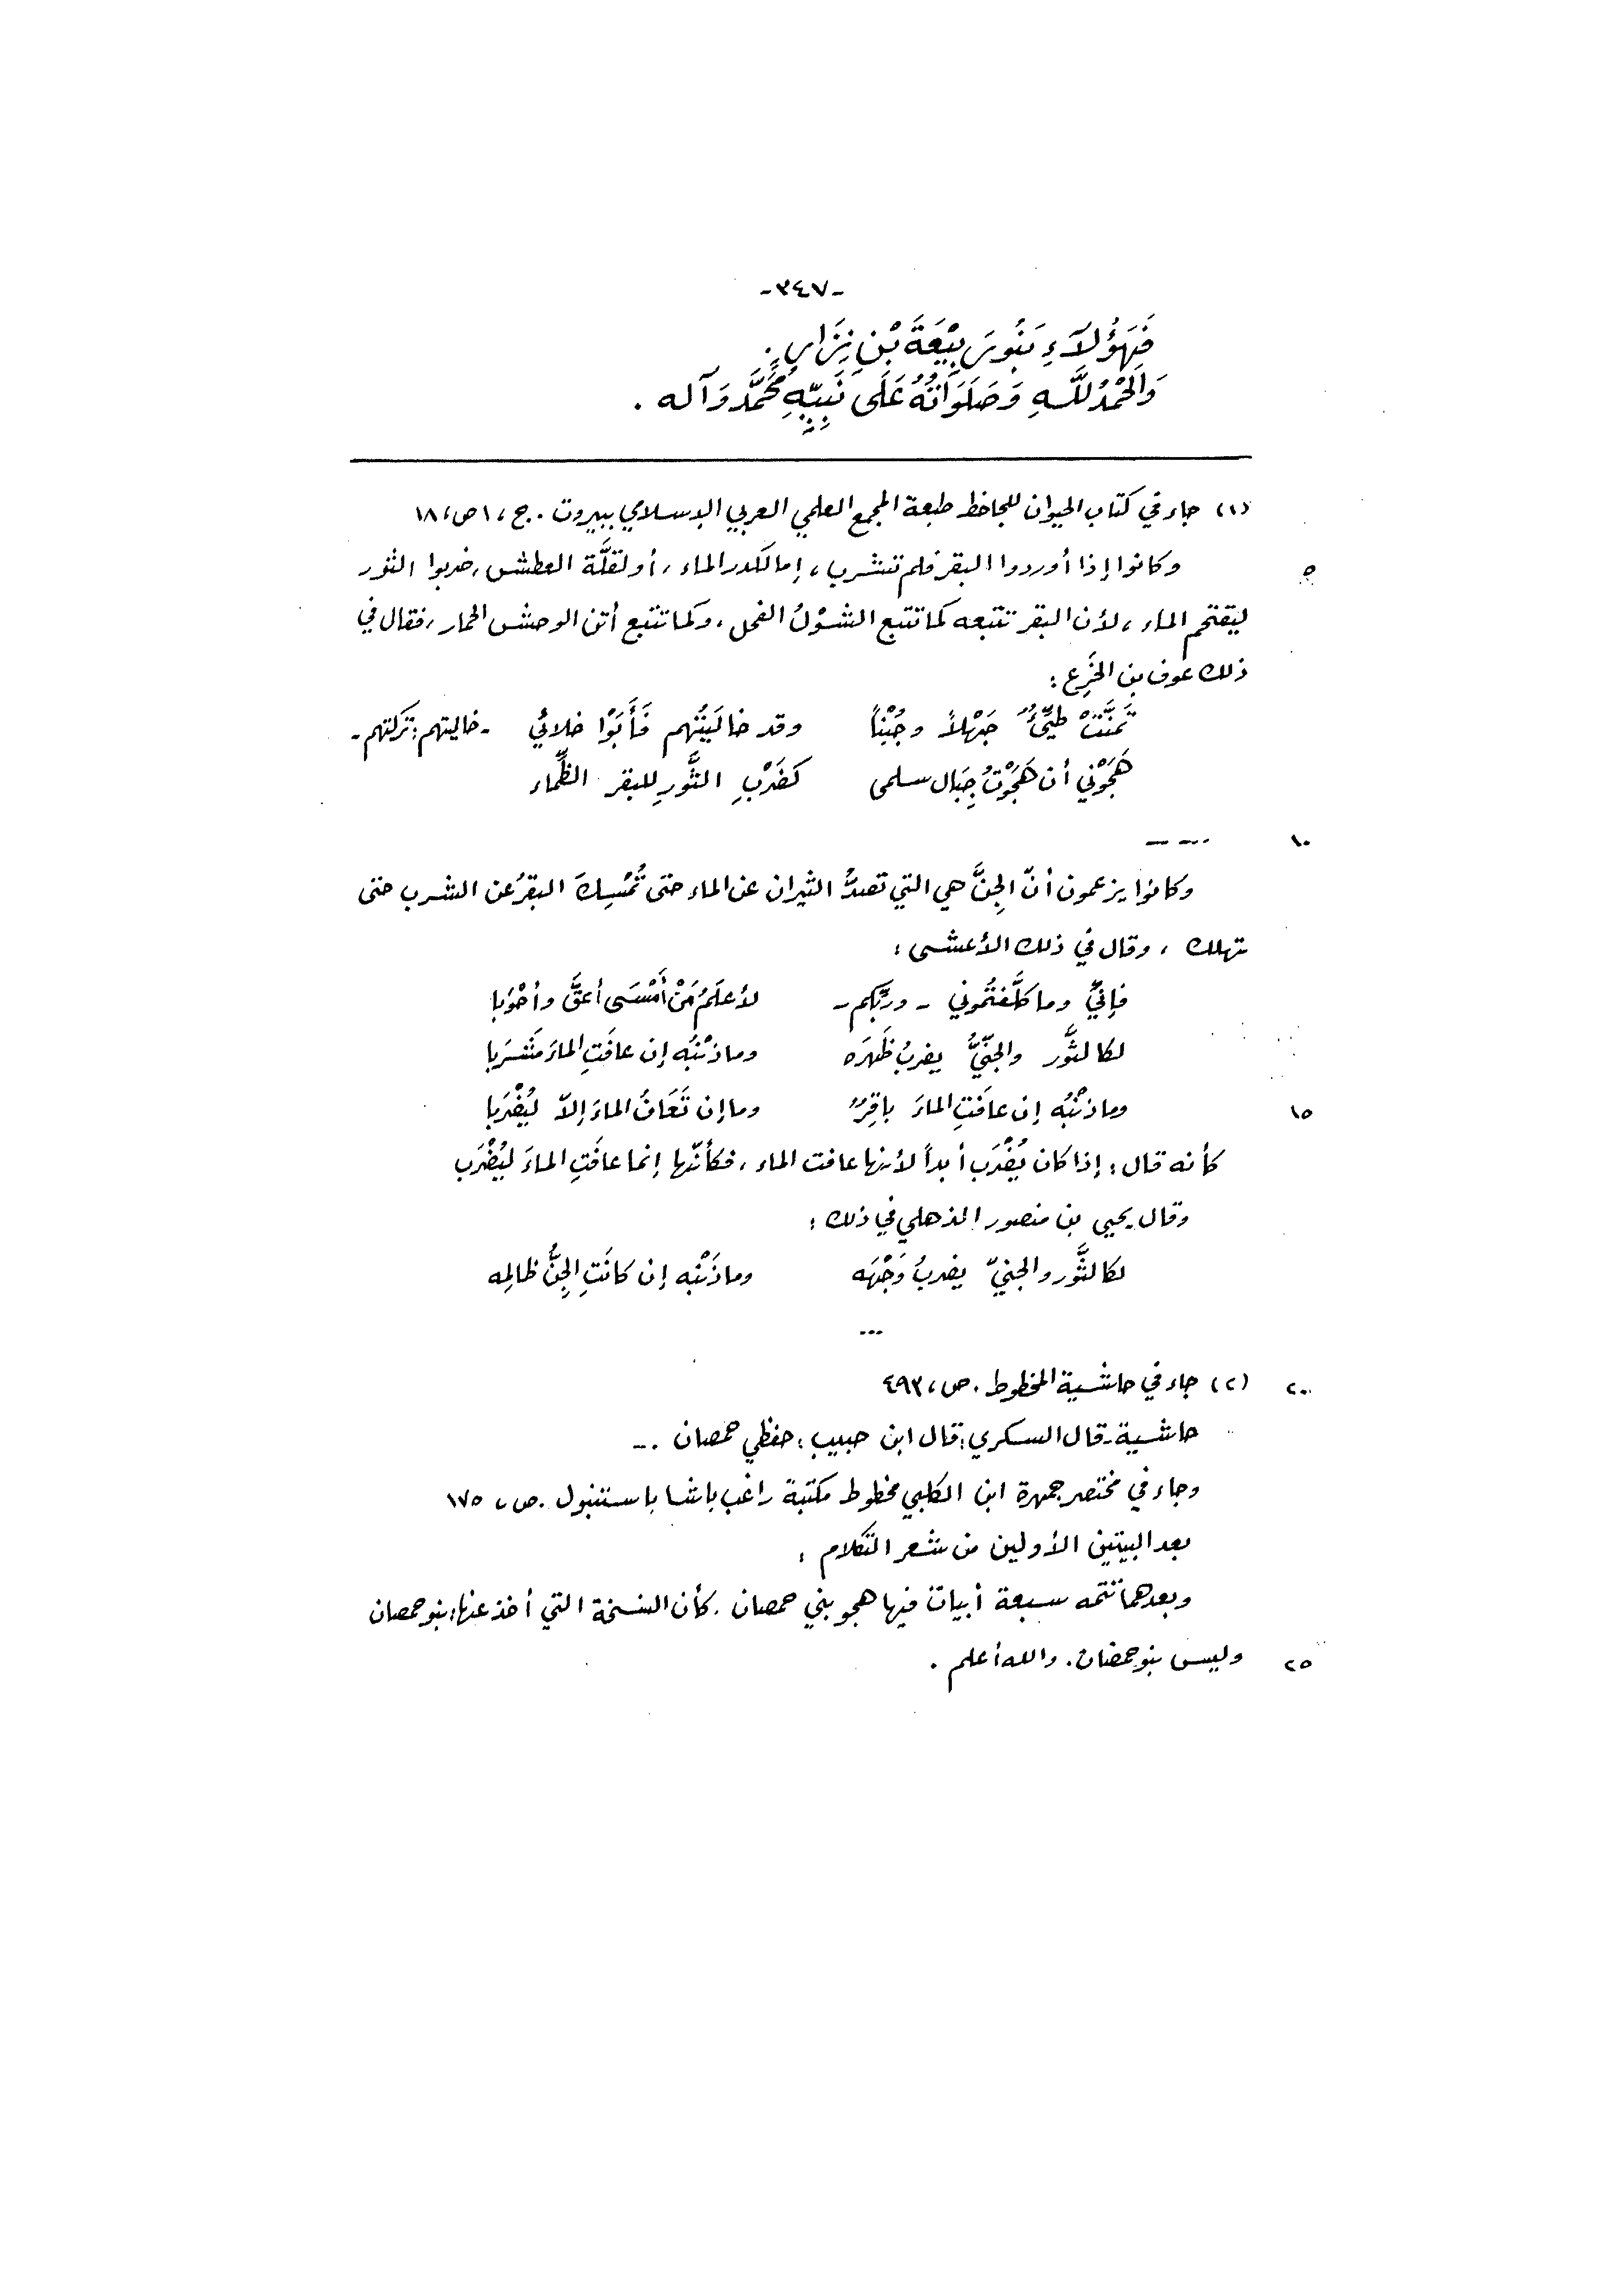 -٣٤٧-
فَهَؤُلَآءِ بَنُو رَبِيْعَةَ بْنِ نِزَارٍ.
وَالْحَمْدُ لِلَّهِ وَصَلَوَاتُهُ عَلَى نَبِيِّهِ مُحَمَّدٍ وَآله .
(١) جاء في كتاب الحيوان للجاحظ طبعة المجمع العلمي العربي الإسلامي ببيروت . ج ، ١ ص ، ١٨
٥ وكانوا إذا أوردوا البقر فلم تشرب ، إما لكدر الماء ، أو لقلَّة العطش ، ضربوا الثور
ليقتحم الماء ، لأن البقر تتبعه كما تتبع الشَوْلُ الفحل ، وكما تتبع أتن الوحش الحمار ، فقال في
ذلك عوف بن الخَرِع :
تَمَنَّتْ طَيِّءٌ جَهْلاً وجُبْناً وقد خالَيْتُهم فَأَبَوْا خلائي - خاليتهم : تركتهم -
هَجَوْني أن هَجَوْتُ جِبَال سلمى كَضَرْبِ الثَّورِ للبقر الظِّماء
١٠ ---
وكانوا يزعمون أنّ الجِنَّ هي التي تصدُّ الثيران عن الماء حتى تُمْسِكَ البقرُ عن الشرب حتى
تهلك ، وقال في ذلك الأعشى :
فإنّي وما كلَّفتُموني - وربّكم - لأعلَمُ مَنْ أَمْسَى أعقَّ وأحْوَبا
لكالثَّور والجنّيُّ يضربُ ظَهرَه وما ذنْبُه إن عافَتِ الماءَ مَشْرَبا
١٥ وما ذنْبُه إن عافَتِ الماءَ باقِرٌ وما إن تَعَافُ الماءَ إلاّ ليُضْرَبا
كأنه قال : إذا كان يُضْرَب أبداً لأنها عافت الماء ، فكأنّها إنما عافَتِ الماءَ ليُضْرَب
وقال يحيى بن منصور الذهلي في ذلك :
لكالثَّور والجنيّ يضربُ وَجْهَه وما ذَنْبه إن كانَتِ الجِنُّ ظالمِه
...
٢٠ (٢) جاء في حاشية المخطوط . ص ، ٤٩٣
حاشية - قال السكري : قال ابن حبيب : حفظي حمصان . -
وجاء في مختصر جمهرة ابن الكلبي مخطوط مكتبة راغب باشا باستنبول . ص ، ١٧٥
بعد البيتين الأولين من شعر التكلام :
وبعدهما تتمه سبعة أبيات فيها هجو بني حمصان . كأن النسخة التي أخذ عنها : بنو حمصان
٢٥ وليس بنو حمضان . والله أعلم .